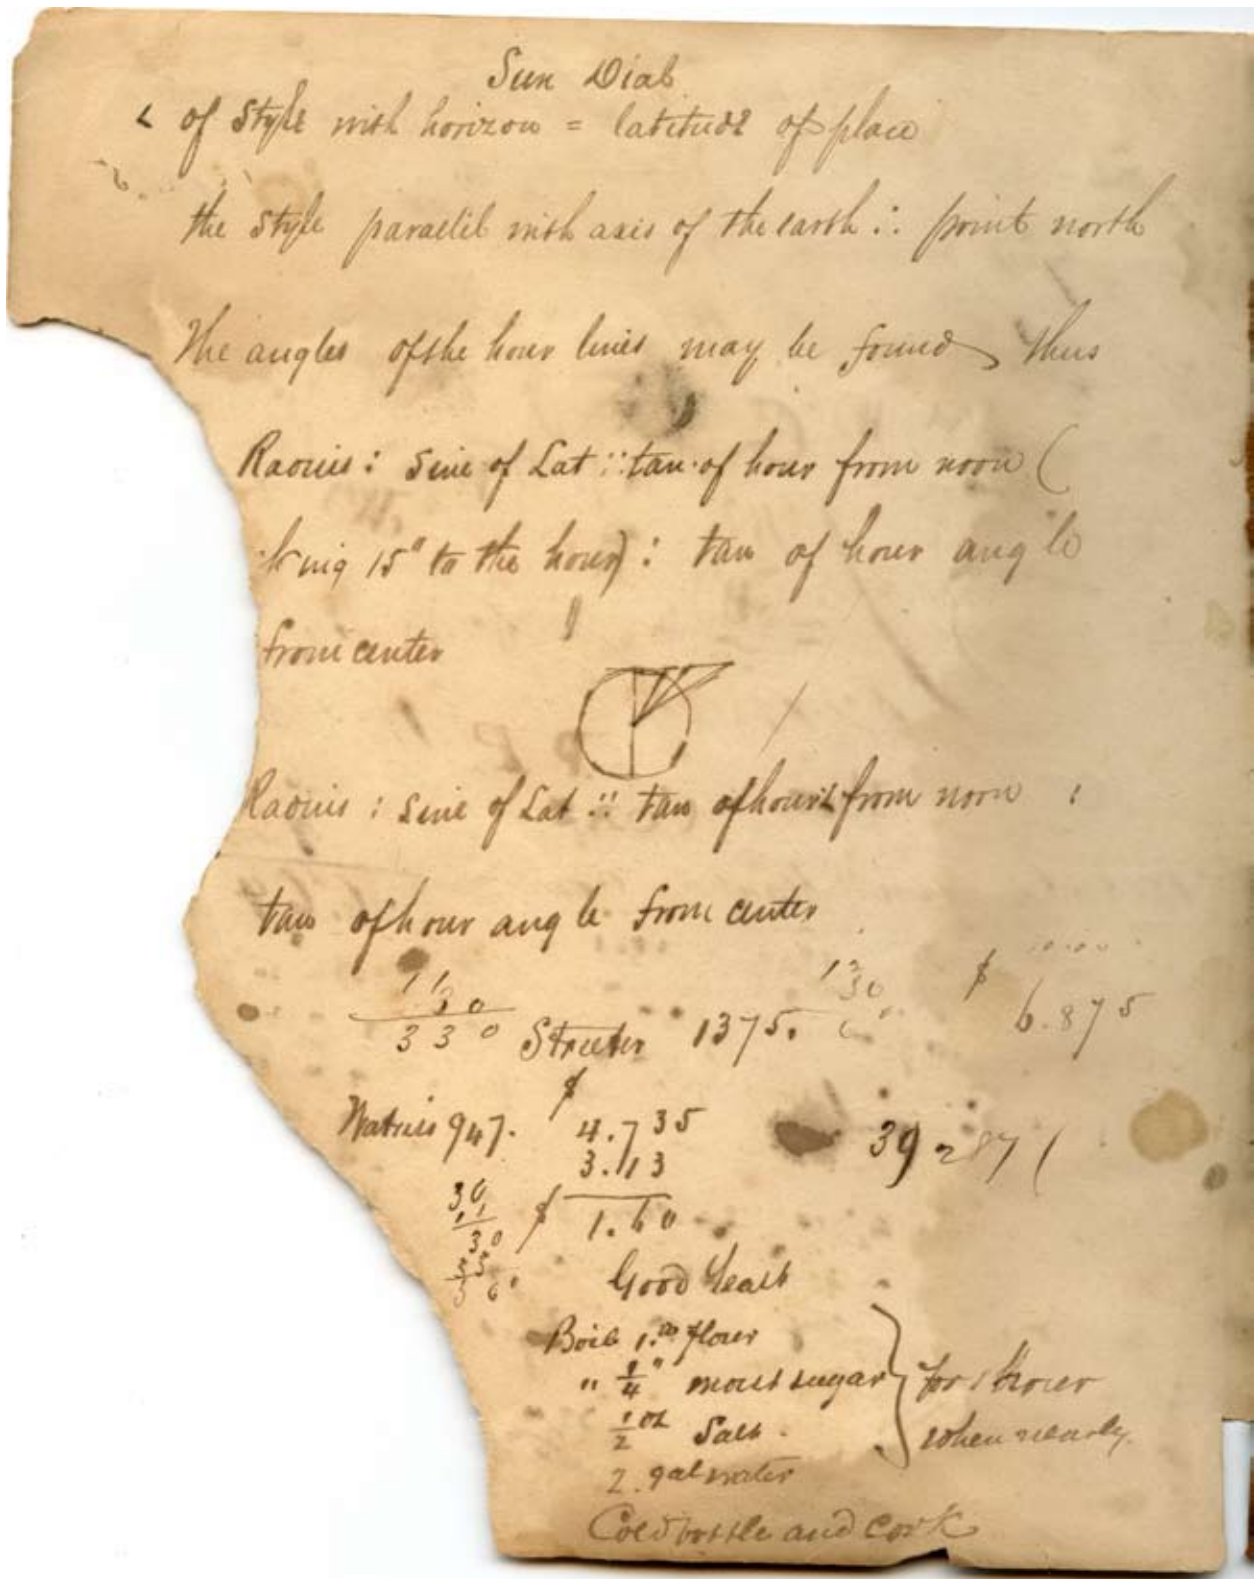 Sun Dial
< of Style with horizon = latitude of place
the Style parallel with axis of the earth ∴ point north
The angles of the hour lines may be found thus
Radius : Sine of Lat :: tan. of hour from noon (
15° to the hour) : tan of hour angle
from center
Radius : Sine of Lat :: tan of hours from noon :
tan of hour angle from center
11
30
330
Streeter 1375.
130
$ 6.875
947. $ 4.735
3.13
$ 1.60
30
11
30
39287 (
Good Yeast
Boil 1. lb flour
" 1/4 " moist sugar
1/2 oz Salt.
2. gal water
for 1 hour
when nearly
Cold bottle and cork